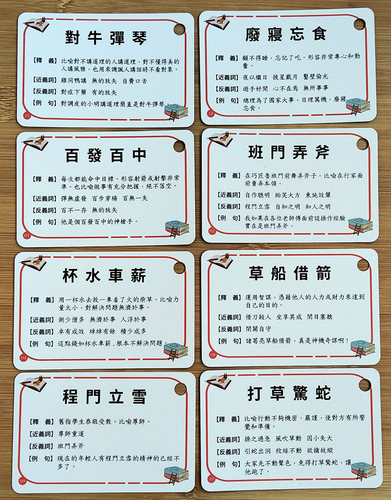 對牛彈琴
【釋　義】比喻對不講道理的人講道理，對不懂得美的
人講風雅。也用來譏諷人講話時不看對象。
【近義詞】雞同鴨講　無的放矢　自費口舌
【反義詞】對症下藥　有的放矢
【例　句】對調皮的小明講道理簡直是對牛彈琴。
廢寢忘食
【釋　義】顧不得睡，忘記了吃。形容非常專心和勤
奮。
【近義詞】夜以繼日　披星戴月　鑿壁偷光
【反義詞】遊手好閒　心不在焉　無所事事
【例　句】總理為了國家大事，日理萬機，廢寢
忘食。
百發百中
【釋　義】每次都能命中目標，形容射箭或射擊非常
準，也比喻做事有充分把握，絕不落空。
【近義詞】彈無虛發　百步穿楊　百無一失
【反義詞】百不一存　無的放矢
【例　句】他是個百發百中的神槍手。
班門弄斧
【釋　義】在巧匠魯班門前舞弄斧子。比喻在行家面
前賣弄本領。
【近義詞】自作聰明　貽笑大方　東施效顰
【反義詞】程門立雪　自知之明　知人之明
【例　句】我如果在各位老師傅面前談操作經驗
實在是班門弄斧。
杯水車薪
【釋　義】用一杯水去救一車着了火的柴草。比喻力
量太小，對解決問題無濟於事。
【近義詞】粥少僧多　無濟於事　人浮於事
【反義詞】卓有成效　綽綽有餘　積少成多
【例　句】這點錢如杯水車薪，根本不解決問題
草船借箭
【釋　義】運用智謀，憑藉他人的人力或財力來達到
自己的目的。
【近義詞】借刀殺人　坐享其成　閉目塞聽
【反義詞】閉關自守
【例　句】諸葛亮草船借箭，真是神機奇謀啊！
程門立雪
【釋　義】舊指學生恭敬受教。比喻尊師。
【近義詞】尊師重道
【反義詞】班門弄斧
【例　句】現在的年輕人有程門立雪的精神的已經不
多了。
打草驚蛇
【釋　義】比喻行動不夠機密、嚴謹，使對方有所警
覺和準備。
【近義詞】操之過急　風吹草動　因小失大
【反義詞】引蛇出洞　紋絲不動　欲擒故縱
【例　句】大家先不動聲色，免得打草驚蛇，讓
他跑了。